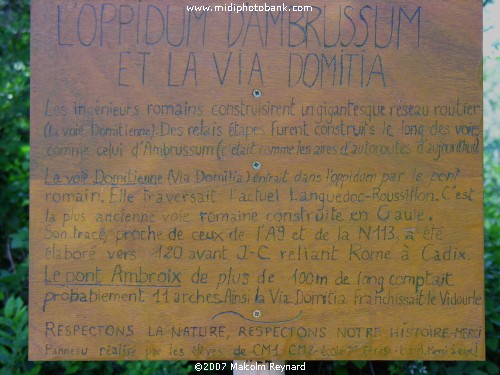 www.midiphotobank.com
L'OPPIDUM D'AMBRUSSUM
ET LA VIA DOMITIA
Les ingénieurs romains construisirent un gigantesque réseau routier
(La voie Domitienne). Des relais étapes furent construits le long des voies
comme celui d'Ambrussum (c'était comme les aires d'autoroutes d'aujourd'hui)
La voie Domitienne (Via Domitia) entrait dans l'oppidum par le pont
romain. Elle traversait l'actuel Languedoc-Roussillon. C'est
la plus ancienne voie romaine construite en Gaule.
Son tracé, proche de ceux de l'A9 et de la N113, a été
élaboré vers 120 avant J-C reliant Rome à Cadix.
Le pont Ambroix de plus de 100m de long comptait
probablement 11 arches. Ainsi la Via Domitia franchissait le Vidourle
RESPECTONS LA NATURE, RESPECTONS NOTRE HISTOIRE-MERCI
Panneau réalisé par les élèves de CM1 CM2-école
©2007 Malcolm Reynard